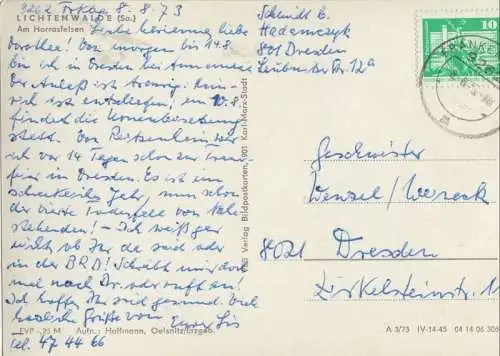 9262 Frkbg 8.8.73
LICHTENWALDE (Sa.)
Am Harrasfelsen
Liebe
liebe
Dorothee! Von morgen bis 14.8.
bin ich in Dresden bei Annemarie
Der Anlaß ist traurig.
ist entschlafen, am 10.8.
findet die Urnenbeisetzung
statt. Von
ich vor 14 Tagen schon zur Trau-
feier in Dresden. Es ist ein
schreckliches Jahr, nun schon
der vierte Todesfall von Nahe-
stehenden! - Ich weiß gar
nicht ob Ihr da seid oder
in der BRD! Schreibt mir doch
mal nach Dr. oder ruft an!
Ich hoffe Ihr seid gesund. Viel
herzliche Grüße von Eurer
EVP -,25 M Aufn.: Hoffmann, Oelsnitz/Erzgeb.
Tel. 47 44 66
Verlag Bildpostkarten, 901 Karl-Marx-Stadt
Schmidt b.
Hadamczyk
801 Dresden
Str. 12a
10
FRANKEN
Geschwister
Wenzel/
8021 Dresden
Zirkelsteinstr. 11
A 3/73 IV-14-45 04 14 06 306